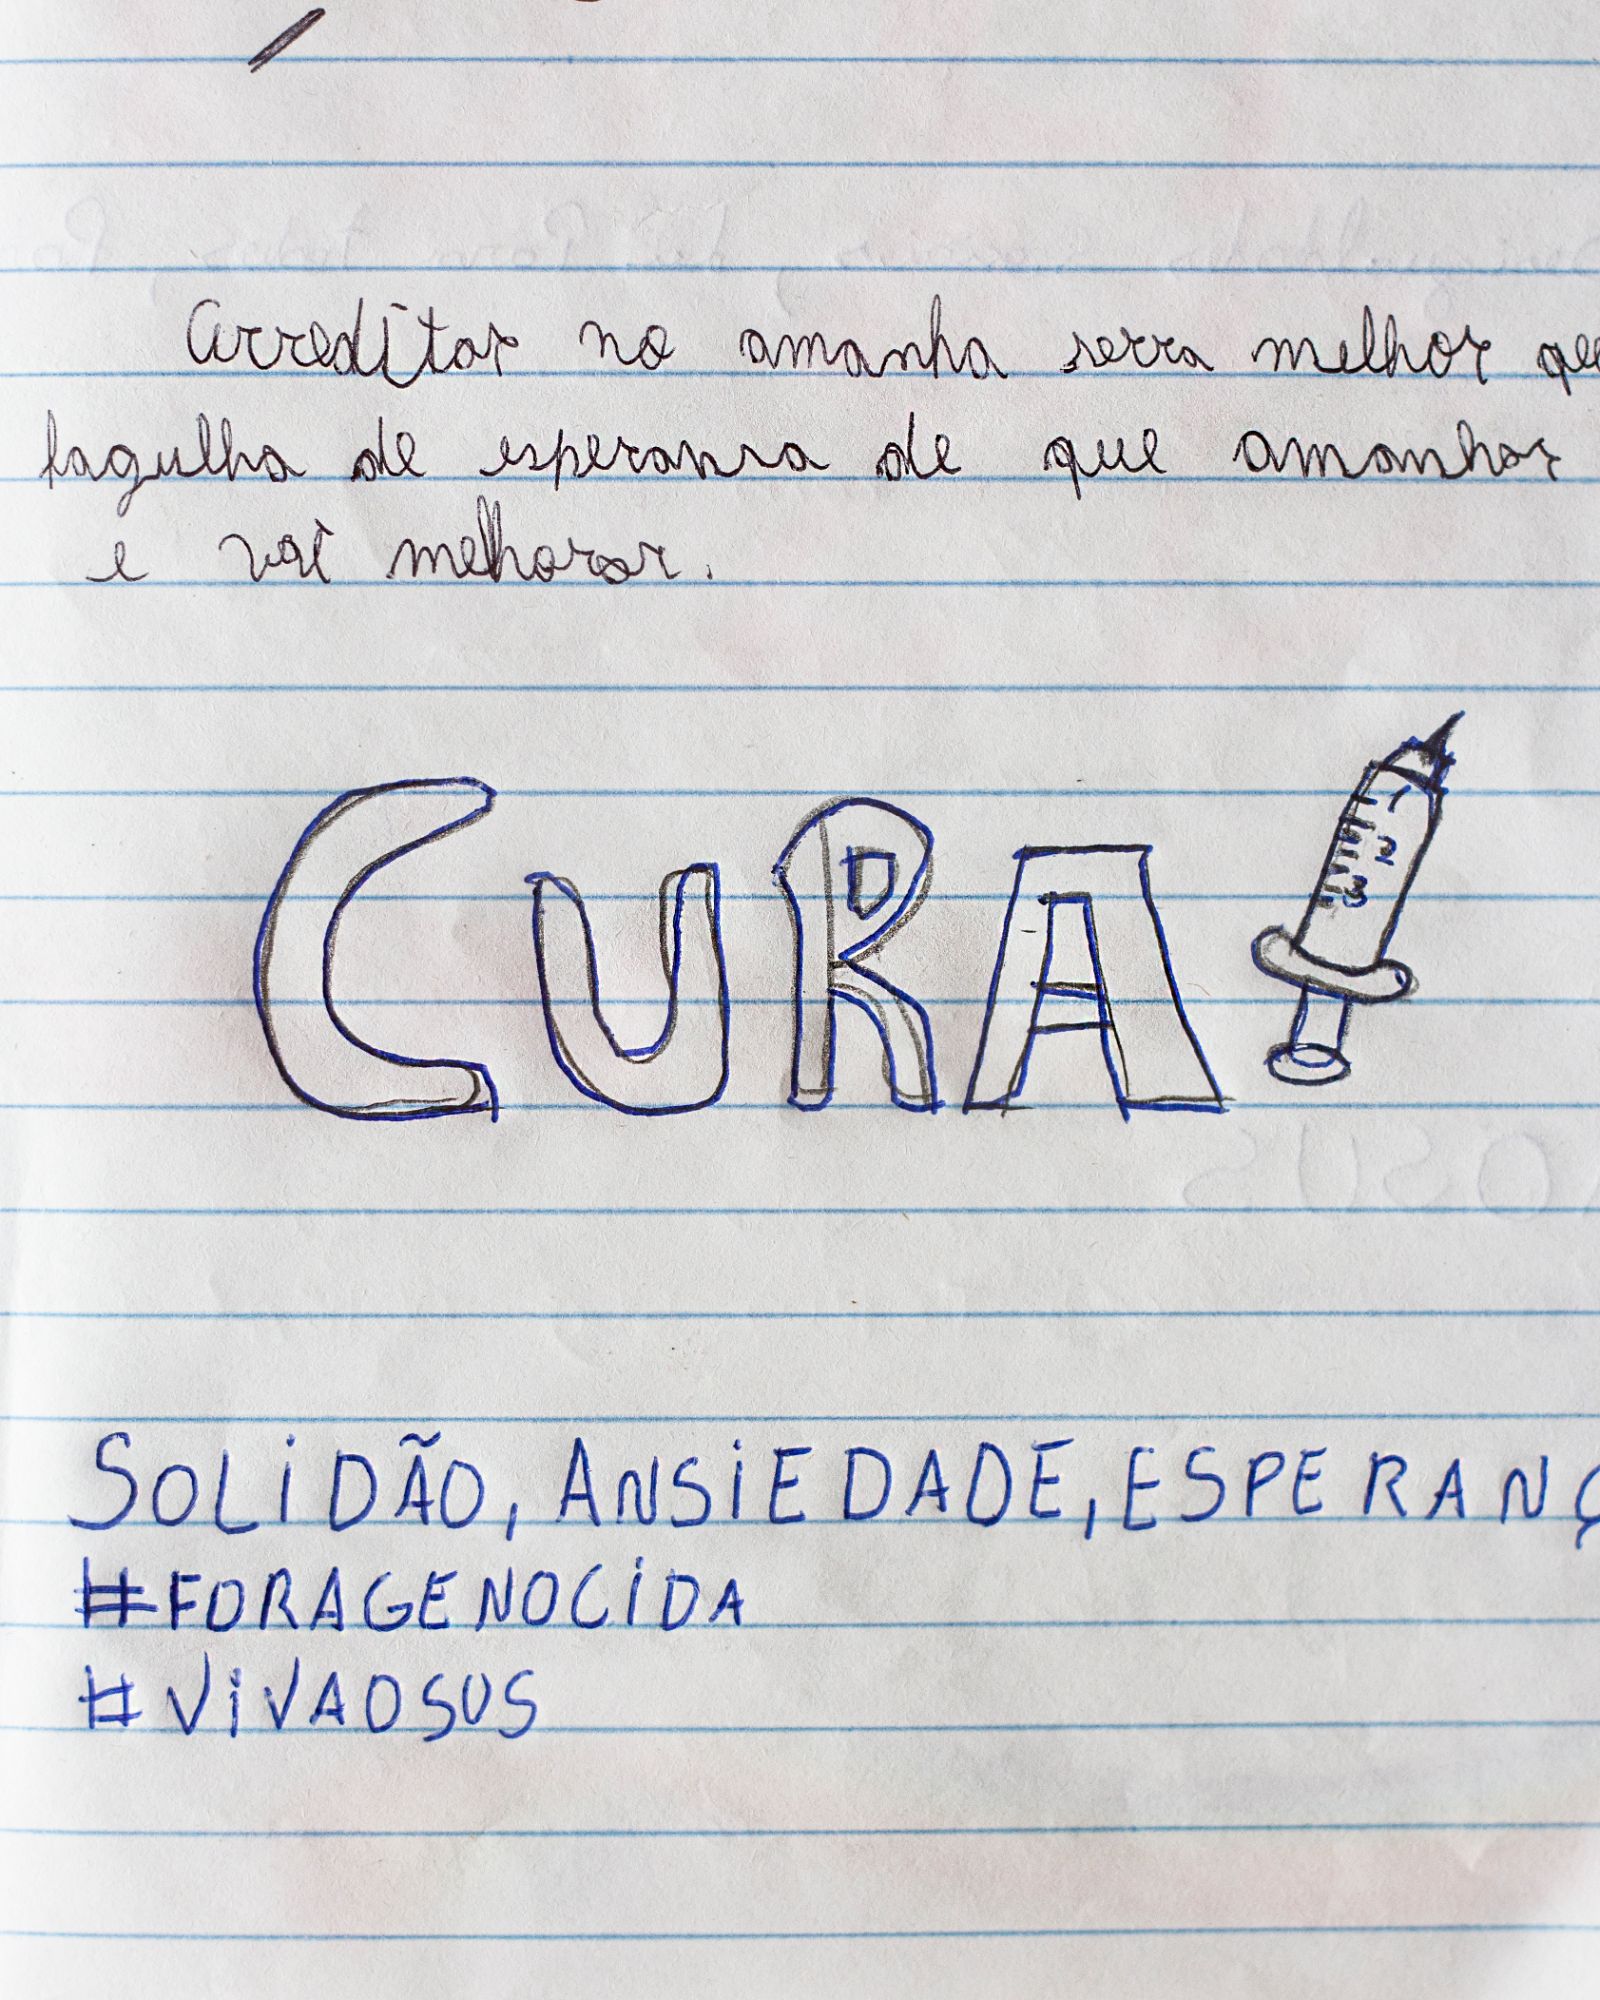 Acreditar no amanha serra melhor que
fagulha de esperansa de que amanhar
e vai melhorar.
CURA
1
2
3
SOLIDÃO, ANSIEDADE, ESPERANÇ
#FORAGENOCIDA
#VIVAOSUS